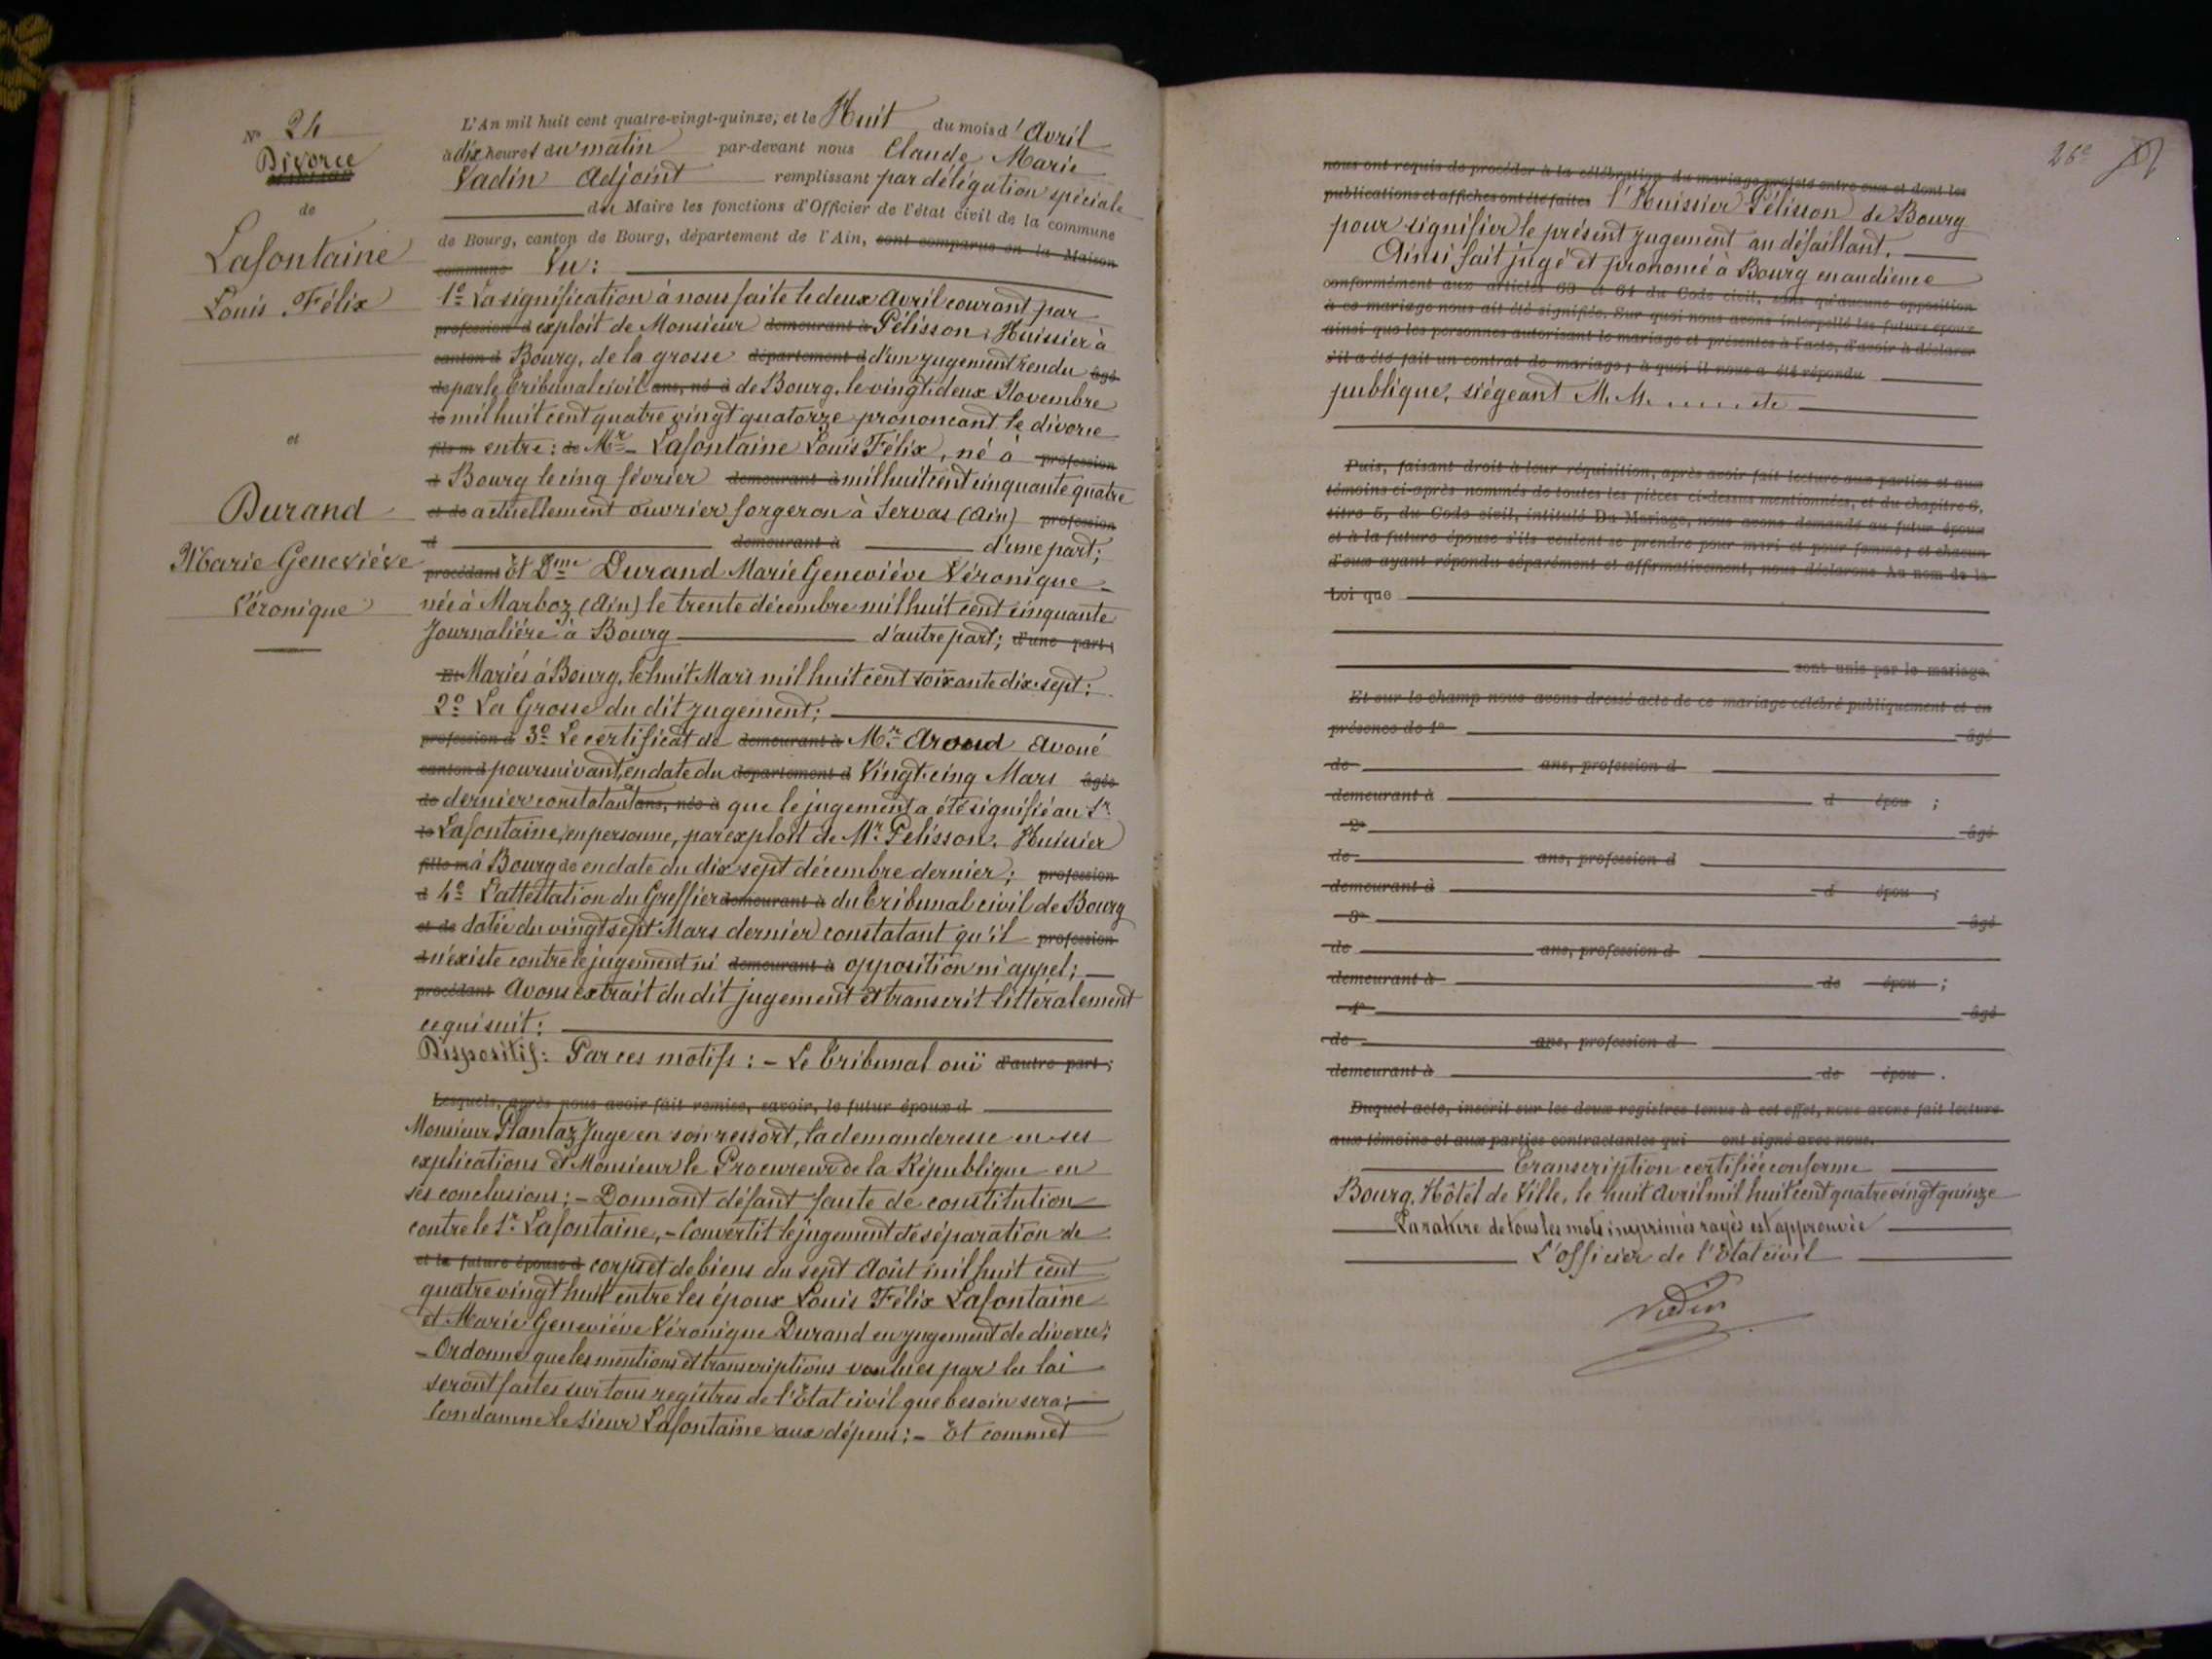 N° 24
Divorce
de
Lafontaine
Louis Félix
et
Durand
Marie Geneviève
Véronique
L'An mil huit cent quatre-vingt-quinze, et le Huit du mois d'Avril
à dix heures du matin par-devant nous Claude Marie
Vadin Adjoint remplissant par délégation spéciale
du Maire les fonctions d'Officier de l'état civil de la commune
de Bourg, canton de Bourg, département de l'Ain, sont comparus en la Maison
commune Vu :
1° La signification à nous faite le deux Avril courant par
profession d exploit de Monsieur demeurant à Pélisson, Huissier à
canton d Bourg, de la grosse département d d'un jugement rendu âgé
de par le Tribunal civil ans, né à de Bourg, le vingt-deux Novembre
le mil huit cent quatre vingt quatorze prononçant le divorce
fils m entre : de Mr Lafontaine Louis Félix, né à profession
d Bourg le cinq février demeurant à mil huit cent cinquante quatre
et de actuellement ouvrier forgeron à Servas (Ain) profession
d demeurant à d'une part ;
procédant Et Dme Durand Marie Geneviève Véronique
née à Marboz (Ain) le trente décembre mil huit cent cinquante
Journalière à Bourg d'autre part ; d'une part ;
Et Mariés à Bourg, le huit Mars mil huit cent soixante dix-sept ;
2° La Grosse du dit jugement ;
profession d 3° Le certificat de demeurant à Mr Aroud Avoué
canton d poursuivant, en date du département d Vingt-cinq Mars âgée
de dernier constatant ans, née à que le jugement a été signifié au Sr
le Lafontaine, en personne, par exploit de Mr Pélisson, Huissier
fille m à Bourg de en date du dix sept décembre dernier ; profession
d 4° L'attestation du Greffier demeurant à du Tribunal civil de Bourg
et de datée du vingt sept Mars dernier constatant qu'il profession
d n'existe contre le jugement ni demeurant à opposition ni appel ;
procédant Avons extrait du dit jugement et transcrit littéralement
ce qui suit :
Dispositif : Par ces motifs : - Le Tribunal ouï d'autre part ;
Lesquels, après nous avoir fait remise, savoir, le futur époux d
Monsieur Plantaz Juge en son ressort, la demanderesse en ses
explications et Monsieur le Procureur de la République en
ses conclusions ; - Donnant défaut faute de constitution
contre le Sr Lafontaine, - Convertit le jugement de séparation de
et la future épouse d corps et de biens du sept Août mil huit cent
quatre vingt huit entre les époux Louis Félix Lafontaine
et Marie Geneviève Véronique Durand en jugement de divorce ;
- Ordonne que les mentions et transcriptions voulues par la loi
seront faites sur tous registres de l'Etat civil que besoin sera ;
Condamne le sieur Lafontaine aux dépens ; - Et commet
26e
nous ont requis de procéder à la célébration du mariage projeté entre eux et dont les
publications et affiches ont été faites l'Huissier Pélisson de Bourg
pour signifier le présent jugement au défaillant.
Ainsi fait jugé et prononcé à Bourg en audience
conformément aux articles 63 et 64 du Code civil, sans qu'aucune opposition
à ce mariage nous ait été signifiée. Sur quoi nous avons interpellé les futurs époux
ainsi que les personnes autorisant le mariage et présentes à l'acte, d'avoir à déclarer
s'il a été fait un contrat de mariage ; à quoi il nous a été répondu
publique, siégeant M. M. ...... etc
Puis, faisant droit à leur réquisition, après avoir fait lecture aux parties et aux
témoins ci-après nommés de toutes les pièces ci-dessus mentionnées, et du chapitre 6,
titre 5, du Code civil, intitulé Du Mariage, nous avons demandé au futur époux
et à la future épouse s'ils veulent se prendre pour mari et pour femme ; et chacun
d'eux ayant répondu séparément et affirmativement, nous déclarons Au nom de la
Loi que
sont unis par le mariage.
Et sur le champ nous avons dressé acte de ce mariage célébré publiquement et en
présence de 1° âgé
de ans, profession d
demeurant à d épou ;
2° âgé
de ans, profession d
demeurant à d épou ;
3° âgé
de ans, profession d
demeurant à de épou ;
4° âgé
de ans, profession d
demeurant à de épou .
Duquel acte, inscrit sur les deux registres tenus à cet effet, nous avons fait lecture
aux témoins et aux parties contractantes qui ont signé avec nous.
Transcription certifiée conforme
Bourg, Hôtel de Ville, le huit Avril mil huit cent quatre vingt quinze
La rature de tous les mots imprimés rayés est approuvée
L'officier de l'Etat civil
Vadin